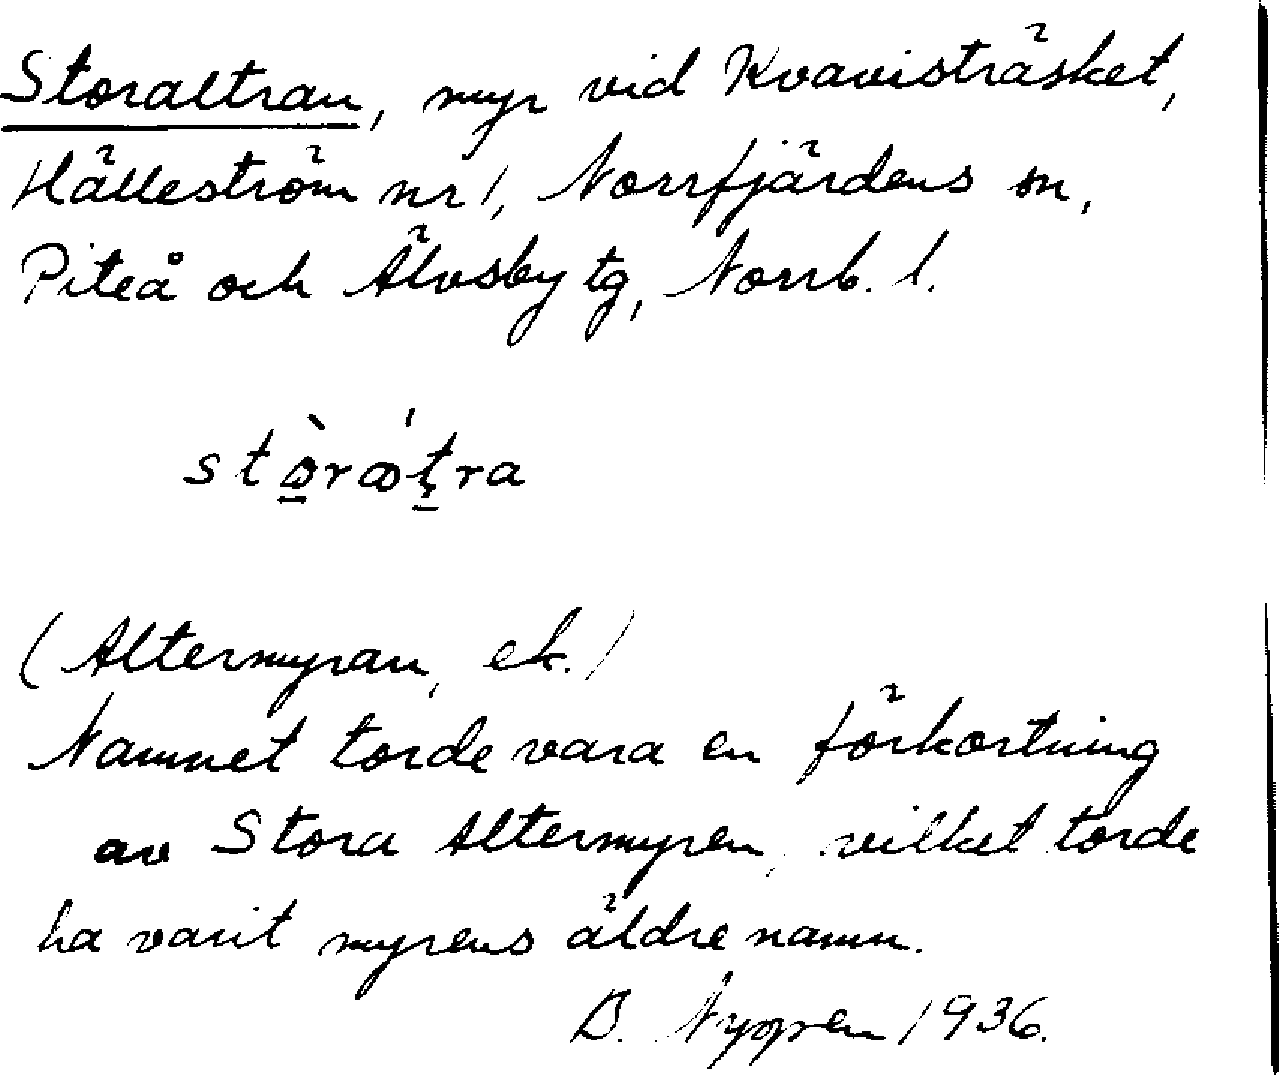 Storaltran, myr vid Kvavisträsket,
Hälleström nr 1, Norrfjärdens sn,
Piteå och Älvsby tg, Norrb. l.
stò̠ræ´ṭ̠ra
(Altermyran, ek.)
Namnet torde vara en förkortning
av Stora Altermyren, vilket torde
ha varit myrens äldre namn.
B. Nygren 1936.